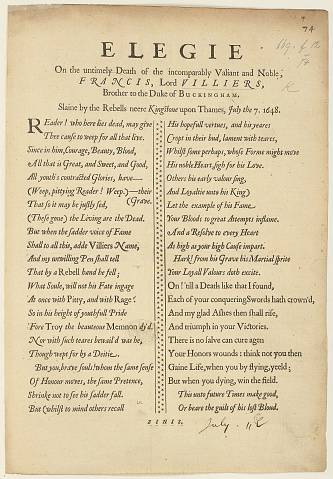 74
ELEGIE
On the untimely Death of the incomparably Valiant and Noble,
FRANCIS, Lord VILLIERS,
Brother to the Duke of BUCKINGHAM.
Slaine by the Rebells neere Kingstone upon Thames, July the 7. 1648.
REader! who here lies dead, may give
Thee cause to weep for all that live.
Since in him, Courage, Beauty, Blood,
All that is Great, and Sweet, and Good,
All youth's contracted Glories, have——
(Weep, pittying Reader! Weep.)—their
(Grave.
That so it may be justly sed,
(These gone) the Living are the Dead.
But when the sadder voice of Fame
Shall to all this, adde Villiers Name,
And my unwilling Pen shall tell
That by a Rebell hand he fell;
What Soule, will not his Fate ingage
At once with Pitty, and with Rage?
So in his height of youthfull Pride
'Fore Troy the beauteous Memnon dy'd.
Nor with such teares bewail'd was he,
Though wept for by a Deitie.
But you, brave souls! whom the same sense
Of Honour moves, the same Pretence,
Shrinke not to see his sadder fall.
But (whilst to mind others recall
His hopefull vertues, and his yeares
Cropt in their bud, lament with teares,
Whilst some perhaps, whose Forme might move
His noble Heart, sigh for his Love.
Others his early valour sing,
And Loyaltie unto his King)
Let the example of his Fame
Your Bloods to great Attempts inflame.
And a Resolve to every Heart
As high as your high Cause impart.
Hark! from his Grave his Martial sprite
Your Loyal Valours doth excite.
On! 'till a Death like that I found,
Each of your conquering Swords hath crown'd,
And my glad Ashes then shall rise,
And triumph in your Victories.
There is no salve can cure agen
Your Honors wounds: think not you then
Gaine Life, when you by flying, yeeld;
But when you dying, win the field.
This unto future Times make good,
Or beare the guilt of his lost Blood.
FINIS.
July. 11